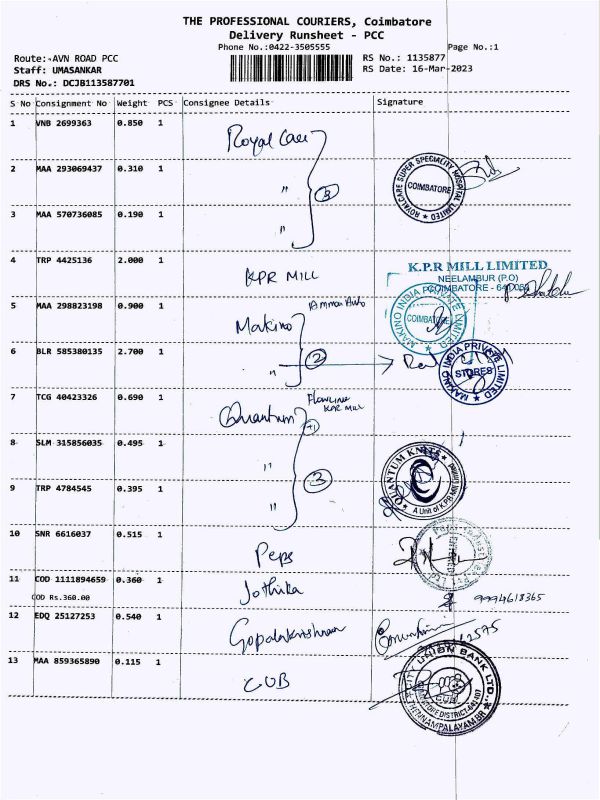 THE PROFESSIONAL COURIERS, Coimbatore
Delivery Runsheet - PCC
Phone No.:0422-3505555 Page No.:1
Route:-AVN ROAD PCC RS No.: 1135877
Staff: UMASANKAR RS Date: 16-Mar-2023
DRS No.: DCJB113587701
S No Consignment No Weight PCS Consignee Details Signature
1 VNB 2699363 0.850 1 Royal Care
2 MAA 293069437 0.310 1 " 3
ROYALCARE SUPER SPECIALITY HOSPITAL LIMITED
COIMBATORE
3 MAA 570736085 0.190 1 "
4 TRP 4425136 2.000 1 KPR MILL
K.P.R MILL LIMITED
NEELAMBUR (P.O)
COIMBATORE - 641
5 MAA 298823198 0.900 1 Makino
MAKINO INDIA PRIVATE LIMITED
COIMBATORE
6 BLR 585380135 2.700 1 " 2
MAKINO INDIA PRIVATE LIMITED
STORES
7 TCG 40423326 0.690 1 Quantum
KPR MILL
8 SLM 315856035 0.495 1 " 3
QUANTUM KNITS
A Unit of K.P.R. Mill Limited
9 TRP 4784545 0.395 1 "
10 SNR 6616037 0.515 1 Peps
11 COD 1111894659 0.360 1 Jothika
COD Rs.360.00 9994618365
12 EDQ 25127253 0.540 1 Gopalakrishnan
13 MAA 859365890 0.115 1 CUB
CITY UNION BANK LTD.
CUB